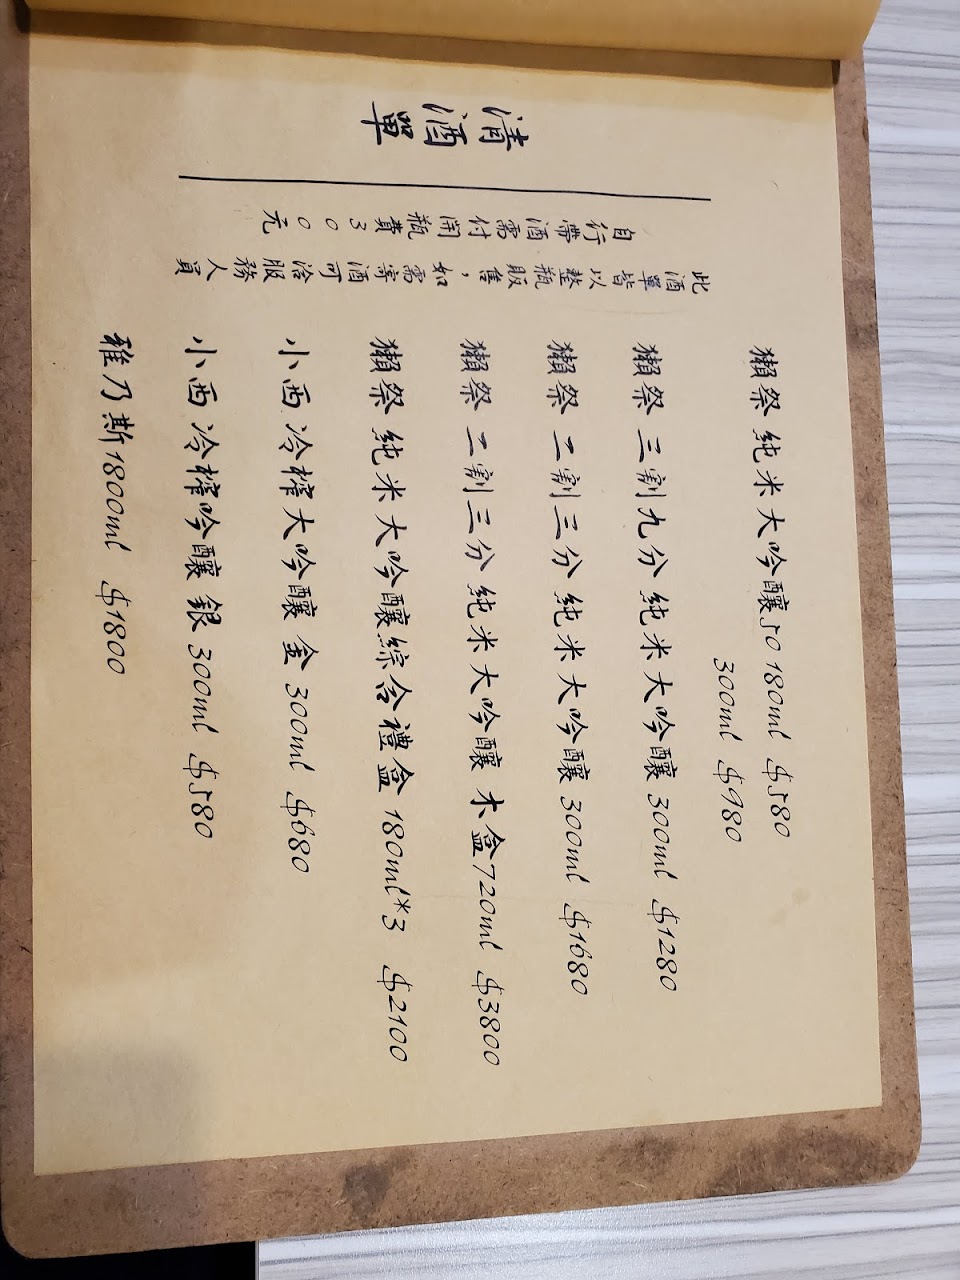 清酒單
自行帶酒需付開瓶費300元
此酒單皆以整瓶販售，如需寄酒可洽服務人員
獺祭 純米大吟釀50 180ml $580
300ml $980
獺祭 三割九分 純米大吟釀 300ml $1280
獺祭 二割三分 純米大吟釀 300ml $1680
獺祭 二割三分 純米大吟釀 木盒720ml $3800
獺祭 純米大吟釀綜合禮盒 180ml*3 $2100
小西 冷榨大吟釀 金 300ml $680
小西 冷榨吟釀 銀 300ml $580
雅乃斯1800ml $1800